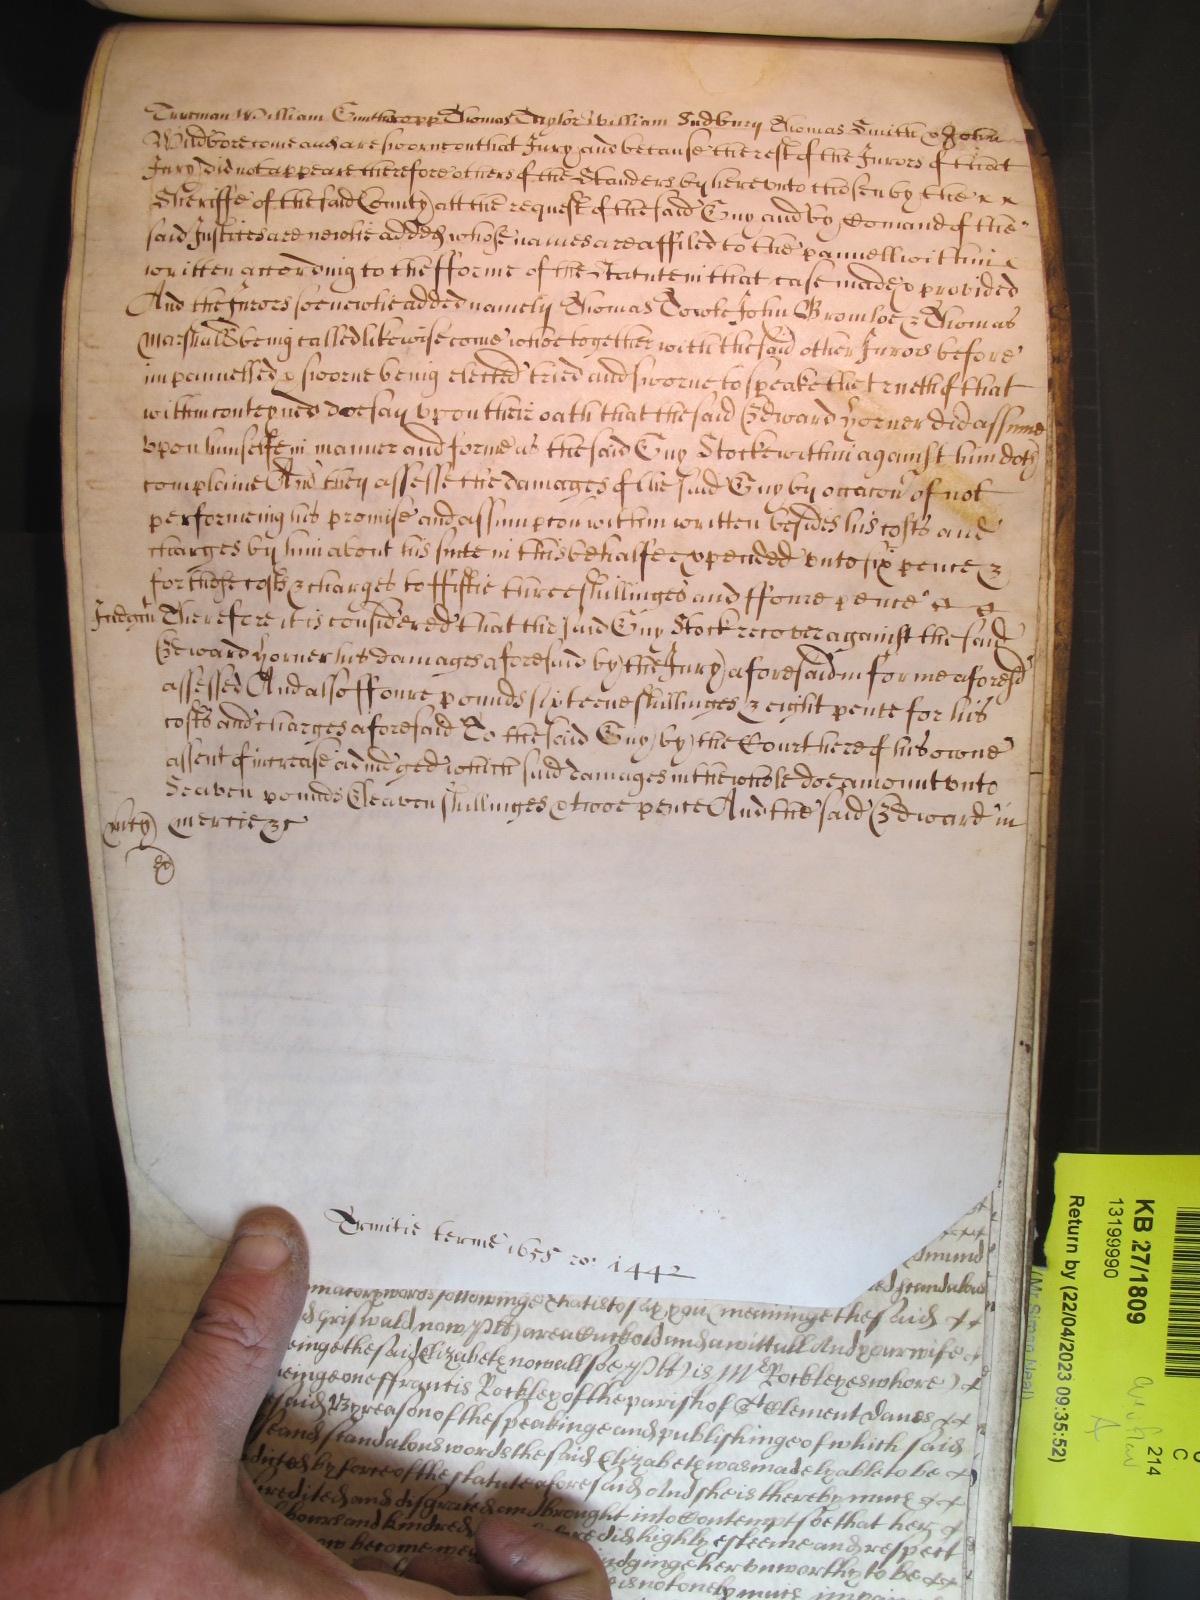 Turman William Gunthropp Thomas Taylor William Sudbury Thomas Smith & John
Wildbore come and are sworne on that Jury and because the rest of the Jurors of that
Jury did not appeare therefore others of the Standers by here unto chosen by the x x
Sheriffe of the said County att the request of the said Guy and by Comand of the
said Justices are newlie added whose names are affiled to the pannell within
written according to the fforme of the Statute in that case made & provided
And the Jurors soe newlie added namely Thomas Towle John Bromloe & Thomas
Marshall being called likewise come whoe together with the said other Jurors before
impannelled & sworne being elected tried and sworne to speake the trueth of that
within conteyned doe say upon their oath that the said Edward Horner did assume
upon himselfe in manner and forme as the said Guy Stocke within against him doth
complaine And they assesse the damages of the said Guy by occacon of not
performeing his promise and assumpcon within written besides his costs and
charges by him about his suite in this behalfe expended unto six pence &
for those costs & charges to ffiftie three shillinges and ffoure pence
Judgm Therefore it is considered that the said Guy Stock recover against the said
Edward Horner his damages aforesaid by the Jury aforesaid in forme aforesd
assessed And also ffoure pounds sixteene shillinges & eight pence for his
costs and charges aforesaid To the said Guy by the Court here of his owne
assent of increase adiudged which said damages in the whole doe amount unto
Seaven pounds Eleaven shillinges & twoe pence And the said Edward in
mcy mercie &c
Trinitie terme 1655 ro: 1442
dmund
ed scandalous
matory words followinge that is to say you (meaninge the said
Griswald now plt) are a Cuckold and a wittall And your wife
einge the said Elizabeth now allsoe plt) is Mr Rockleyes whore)
einge one ffrancis Rockley of the parish of St Clement Danes x x
said By reason of the speakinge and publishinge of which said
se and scandalous words the said Elizabeth was made lyable to be
dicted by force of the statute aforesaid And she is thereby much x x
credited and disgraced and brought into Contempt soe that her
bours and kindred did highly esteeme and respect
ow become judginge her unworthy to be x x
is not onely much
KB 27/1809
13199990
Return by (22/04/2023 09:35:52)
(Mr Simon Neal)
214
C